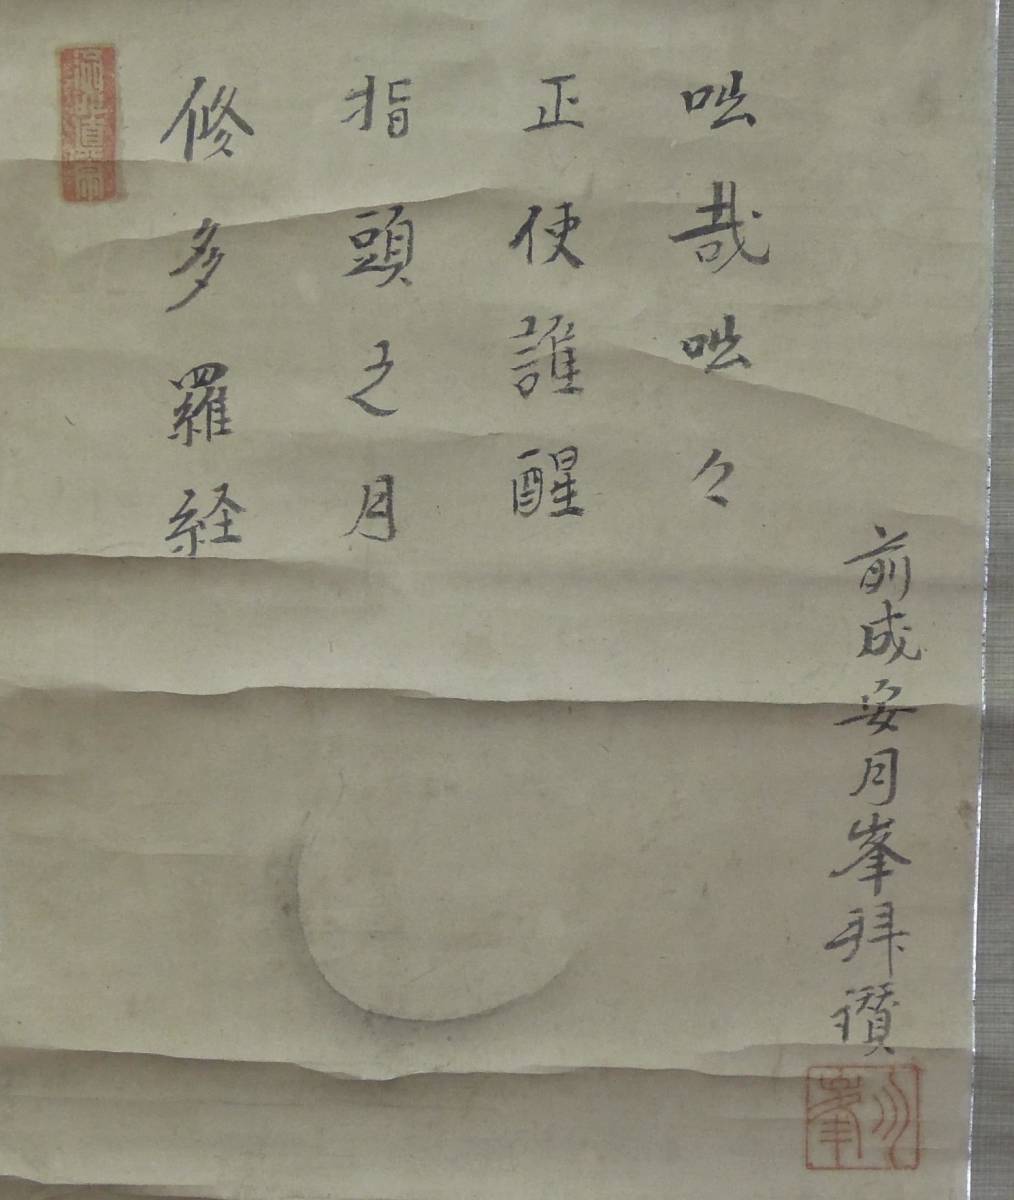 修多羅経
指頭之月
正使誰醒
咄哉咄々
前成安月峯拝讃
月峯